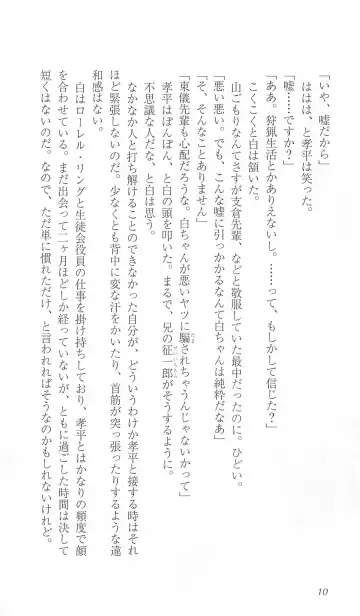 「いや、嘘だから」
ははは、と孝平は笑った。
「嘘……ですか？」
「ああ。狩猟生活とかありえないし。……って、もしかして信じた？」
こくこくと白は頷いた。
山ごもりなんてさすが支倉先輩、などと敬服していた最中だったのに。ひどい。
「悪い悪い。でも、こんな嘘に引っかかるなんて白ちゃんは純粋だなあ」
「そ、そんなことありません」
「東儀先輩も心配だろうな。白ちゃんが悪いヤツに騙されちゃうんじゃないかって」
孝平はぽんぽん、と白の頭を叩いた。まるで、兄の征一郎がそうするように。
不思議な人だな、と白は思う。
なかなか人と打ち解けることのできなかった自分が、どういうわけか孝平と接する時はそれ
ほど緊張しないのだ。少なくとも背中に変な汗をかいたり、首筋が突っ張ったりするような違
和感はない。
白はローレル・リングと生徒会役員の仕事を掛け持ちしており、孝平とはかなりの頻度で顔
を合わせている。まだ出会って二ヶ月ほどしか経っていないが、ともに過ごした時間は決して
短くはないのだ。なので、ただ単に慣れただけ、と言われればそうなのかもしれないけれど。
10